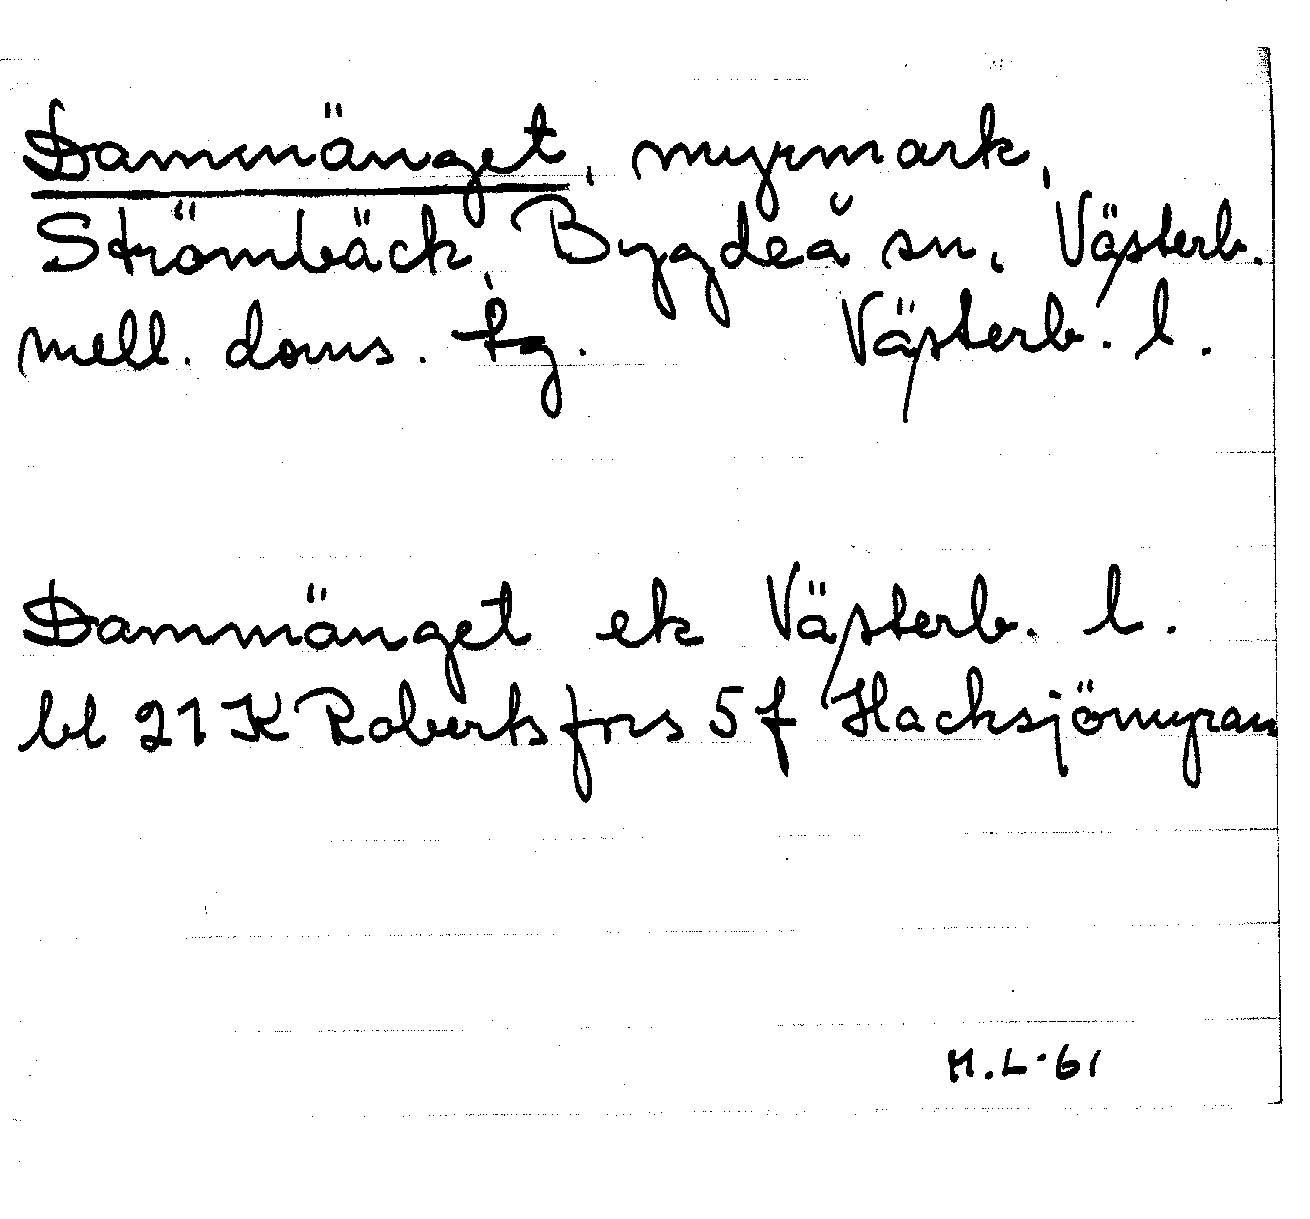 Dammänget, myrmark,
Strömbäck, Bygdeå sn, Västerb.
mell. doms. tg. Västerb. l.
Dammänget ek Västerb. l.
bl 21 K Robertsfors 5 f Hacksjömyran
H.L. 61